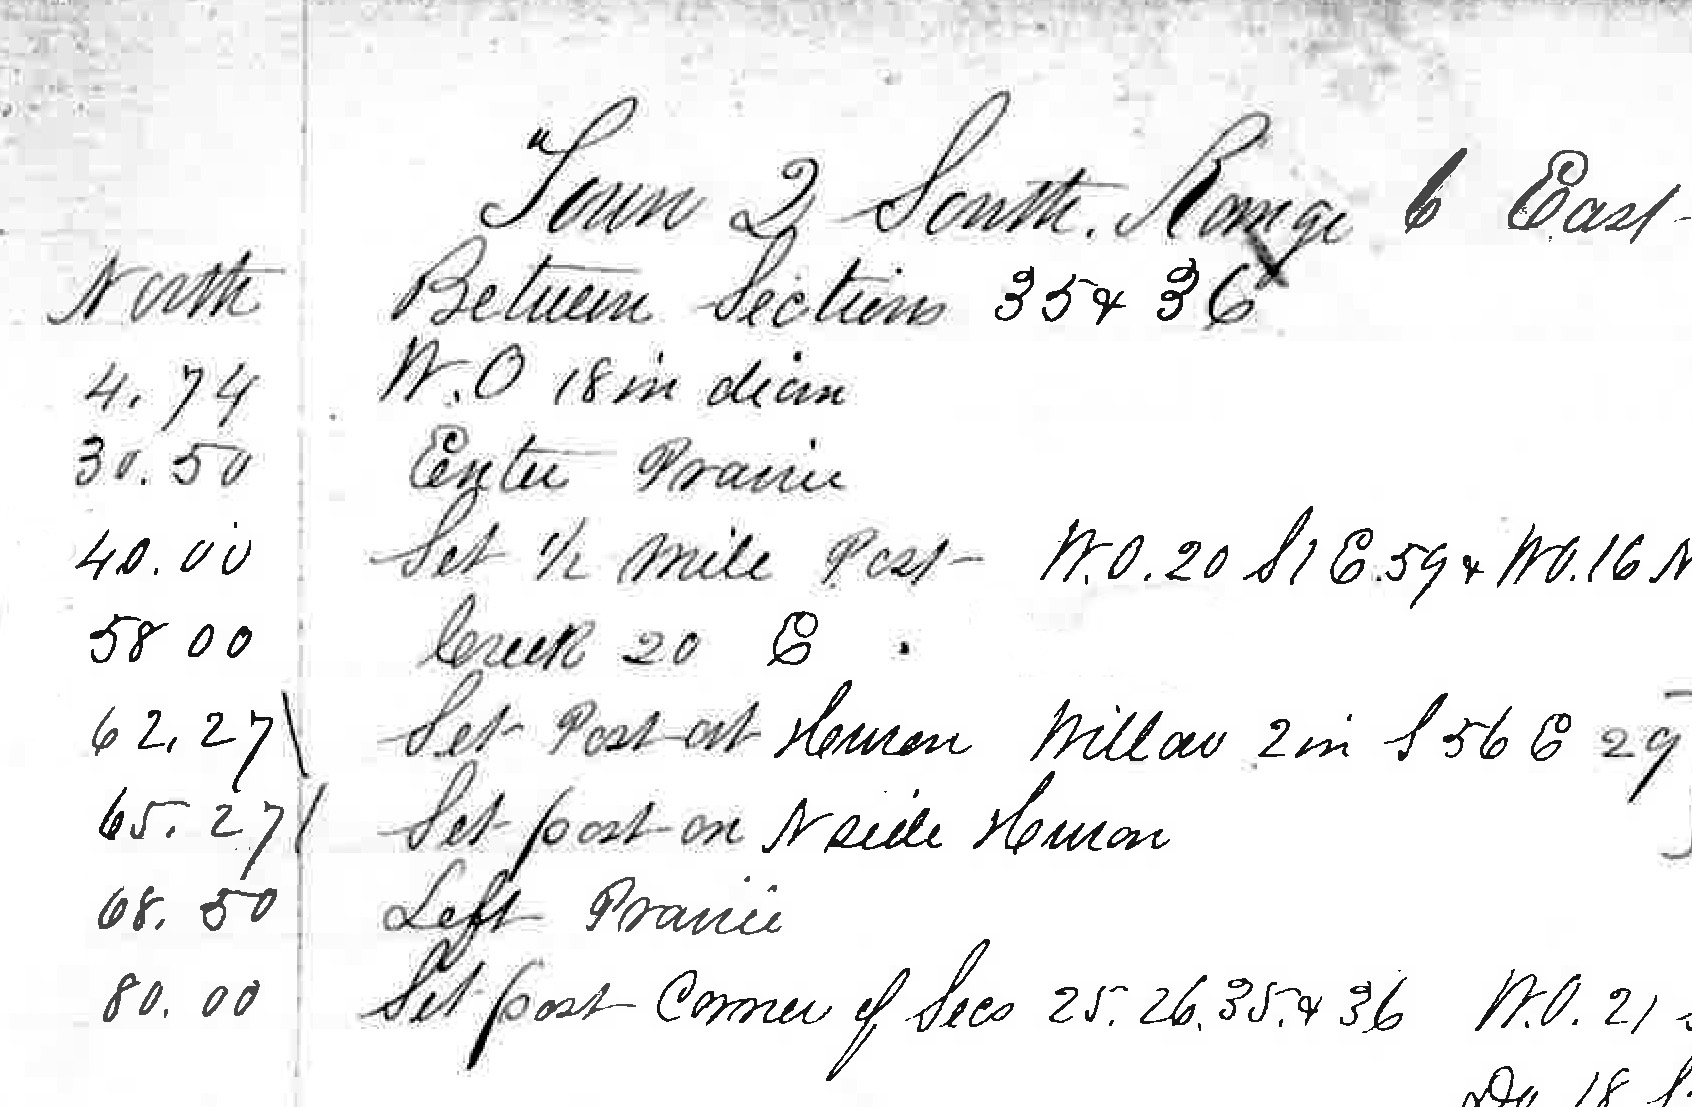 "Town 2 South. Range 6 East-
North Between Sections 35 & 36
4.74 W.O 18 in diam
30.50 Enter Prairie
40.00 Set 1/2 Mile Post W.O. 20 S 1 E. 59 & W.O. 16 N
58 00 Creek 20 E
62.27 Set Post at Huron Willow 2 in S 56 E 29
65.27 Set post on N side Huron
68.50 Left Prairie
80.00 Set post Corner of Secs 25. 26. 35. & 36 W.O. 21
Do 18 S